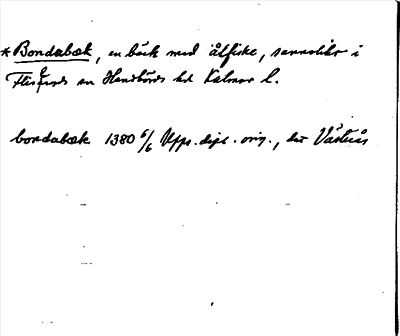 * Bondabæk, en bäck med ålfiske, sannolikt i
Fliseryds sn Handbörds hd Kalmar l.
bondabæk 1380 6/6 Upps. dipl. orig., dat Västerås